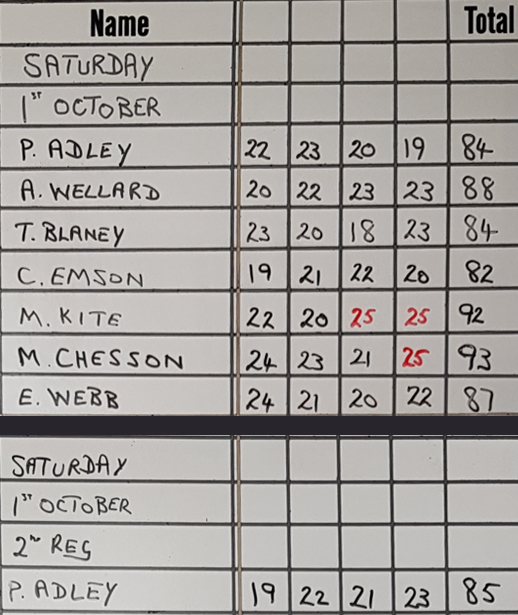 Name Total
SATURDAY
1ST OCTOBER
P. ADLEY 22 23 20 19 84
A. WELLARD 20 22 23 23 88
T. BLANEY 23 20 18 23 84
C. EMSON 19 21 22 20 82
M. KITE 22 20 25 25 92
M. CHESSON 24 23 21 25 93
E. WEBB 24 21 20 22 87
SATURDAY
1ST OCTOBER
2ND REG
P. ADLEY 19 22 21 23 85